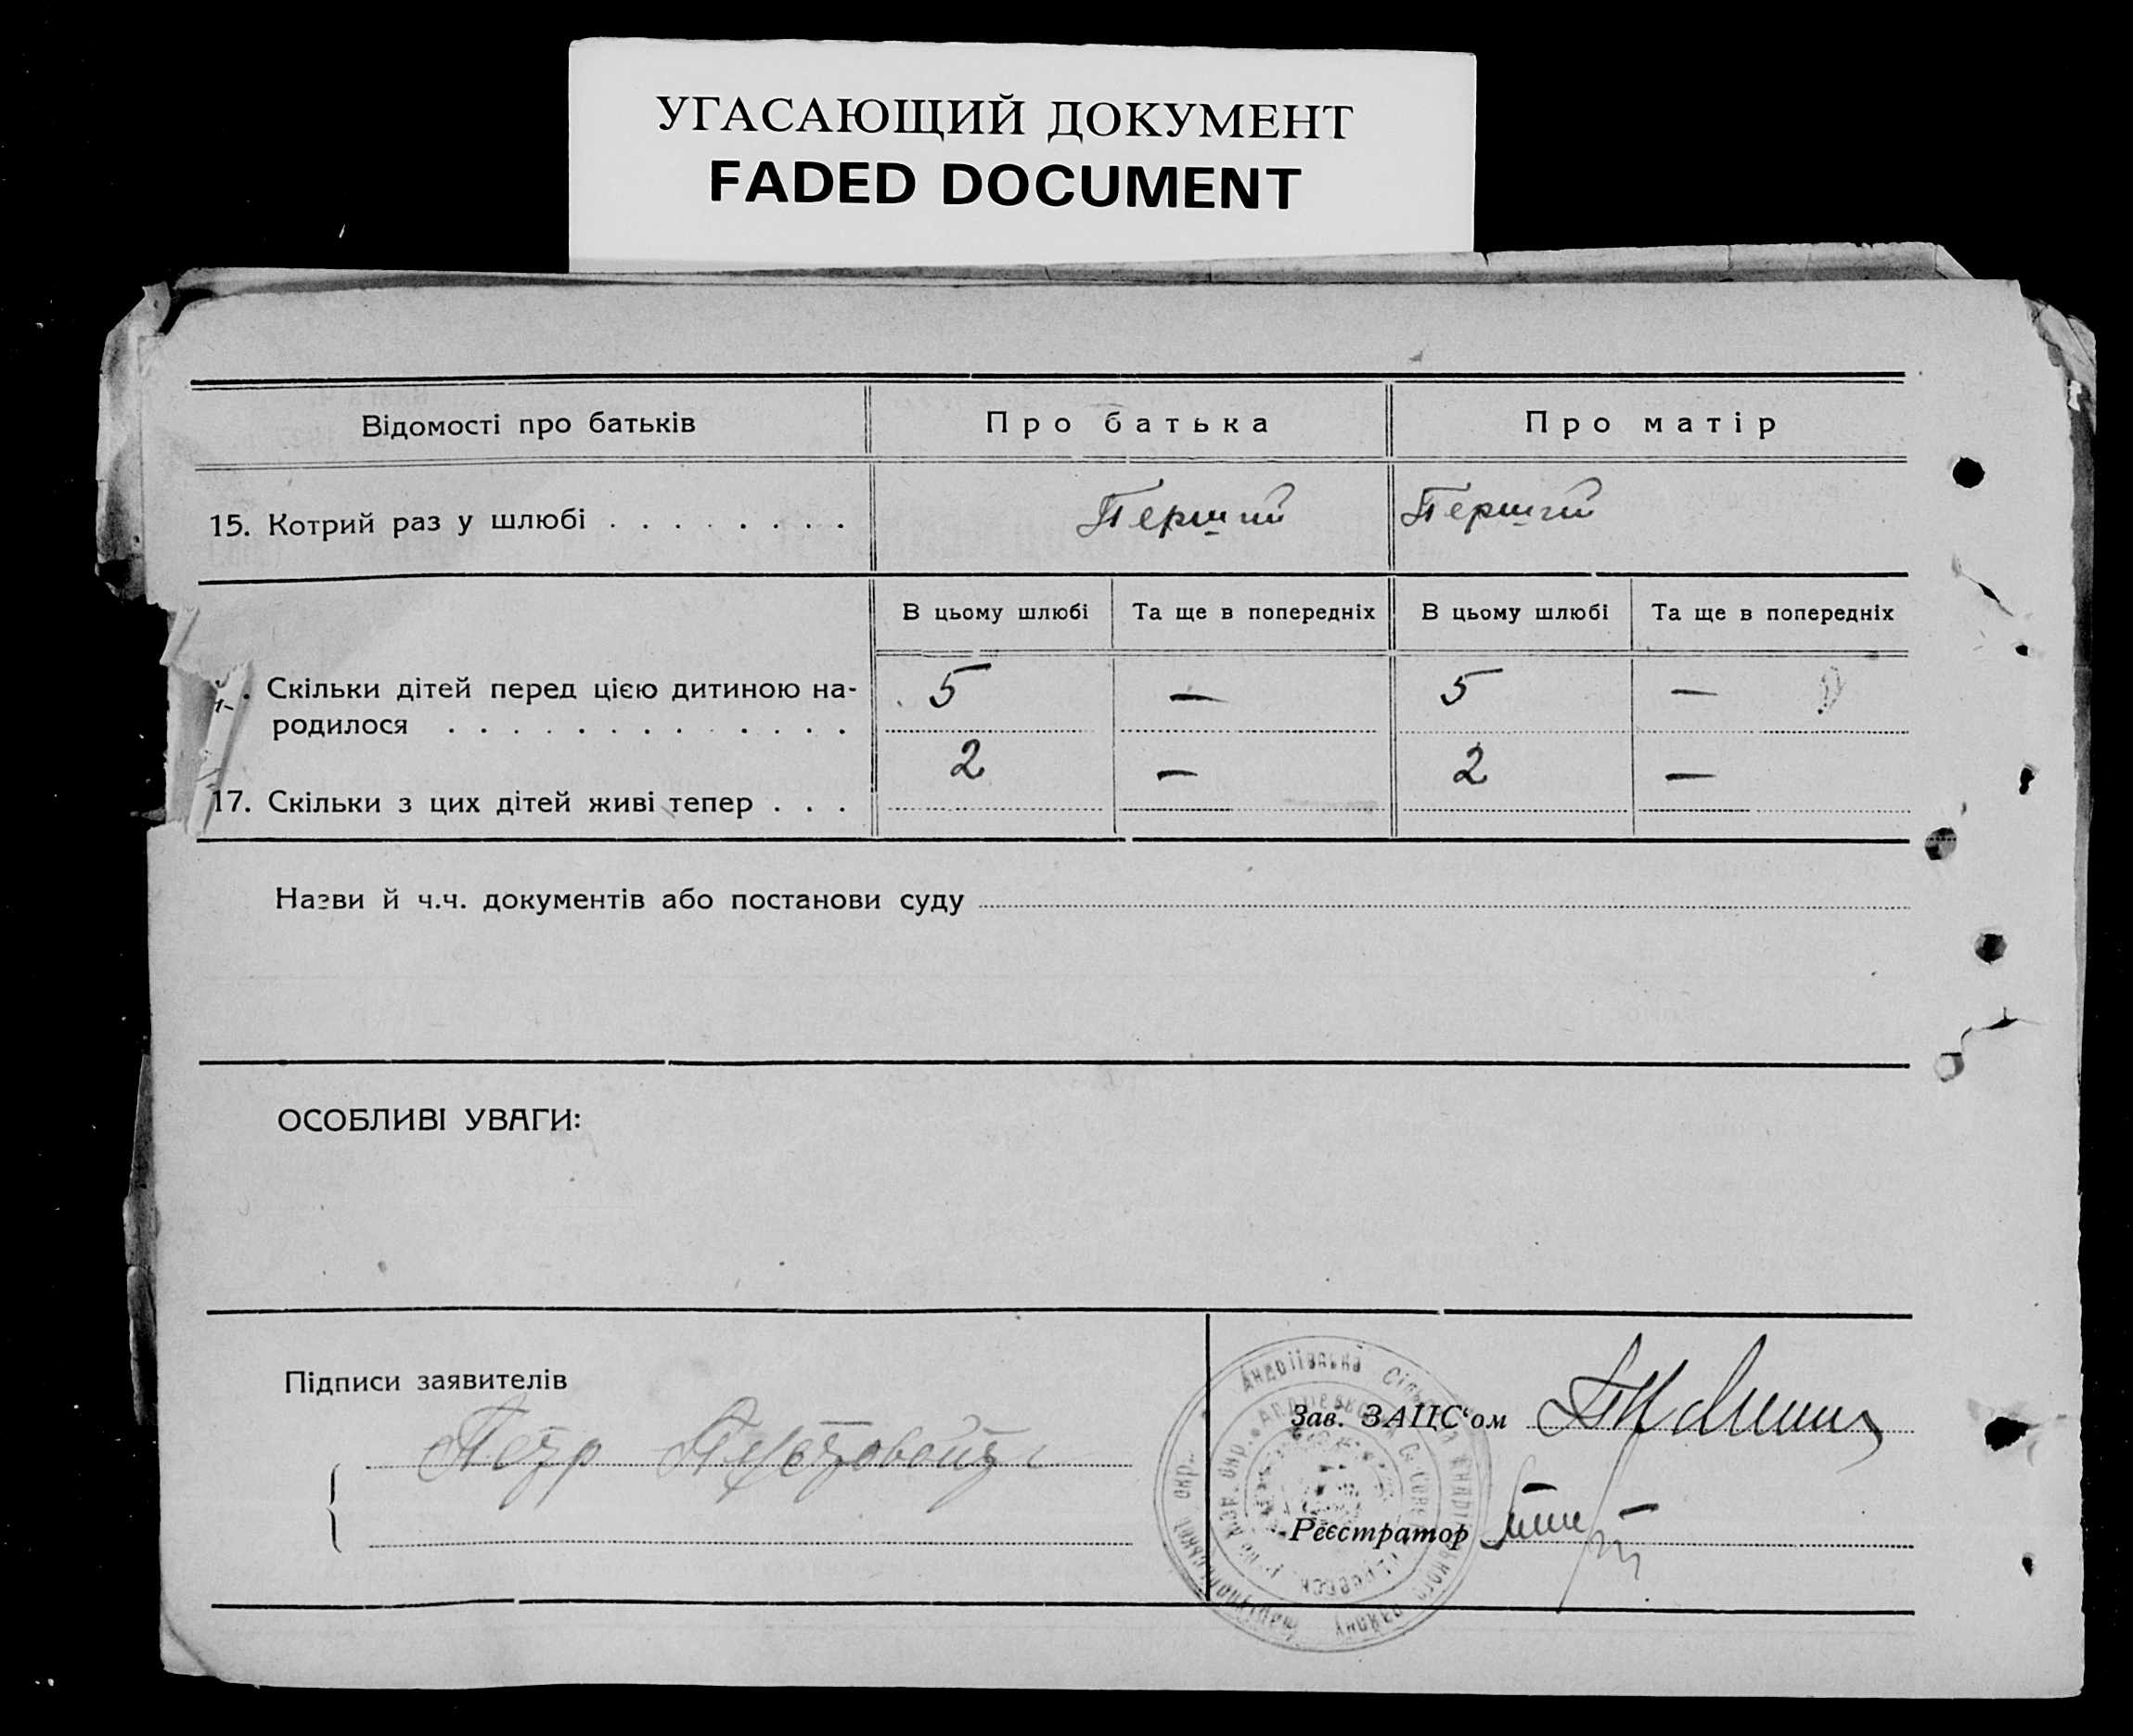 УГАСАЮЩИЙ ДОКУМЕНТ
FADED DOCUMENT
Відомості про батьків Про батька Про матір
15. Котрий раз у шлюбі . . . . . . . . Перший Перший
В цьому шлюбі Та ще в попередніх В цьому шлюбі Та ще в попередніх
. Скільки дітей перед цією дитиною на- 5 — 5 —
родилося . . . . . . . . . . . . .
2 — 2 —
17. Скільки з цих дітей живі тепер . . .
Назви й ч.ч. документів або постанови суду
ОСОБЛИВІ УВАГИ:
Підписи заявителів
Андріївська Сільська
Зав. ЗАПС‘ом
Петр Пустовойт
Реєстратор
району Маріупольської окр.